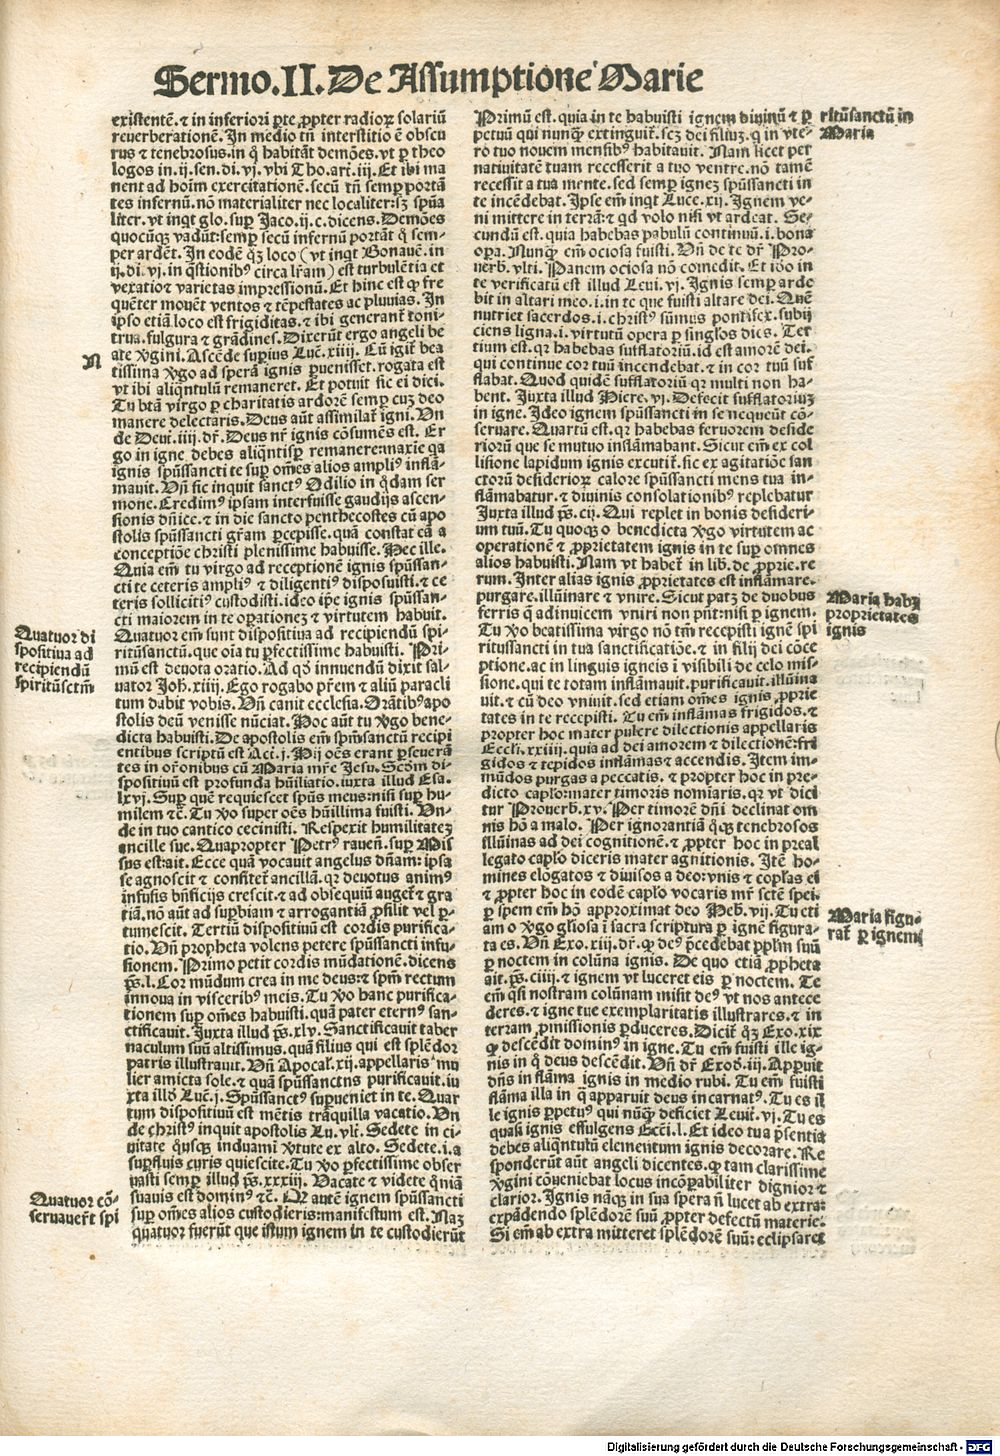 Sermo.II.De Assumptione Marie
existentē.⁊ in inferiori ꝑte ꝓpter radioꝝ solariū
reuerberationē. In medio tñ interstitio ē obscu
rus ⁊ tenebrosus.in q̊ habitāt demōes.vt ꝑ theo
logos in.ij.sen.di.vj.vbi Tho.art.iij. Et ibi ma
nent ad hoīm exercitationē. secū tñ semꝑ portā
tes infernū.nō materialiter nec localiter:sꝫ spūa
liter.vt inqt glo.suꝑ Jaco.ij.c.dicens. Demōes
quocūqꝫ vadūt:semꝑ secū infernū portāt q̊ sem-
per ardēt. In eodē qꝫ loco (vt inqt Bonauē.in
ij.di.vj.in q̄stionibꝰ circa lr̄am) est turbulētia et
vexatio ⁊ varietas impressionū. Et hinc est ꝙ fre
quēter mouēt ventos ⁊ tēpestates ac pluuias. In
ipso etiā loco est frigiditas.⁊ ibi generant̄ toni-
trua.fulgura ⁊ grādines. Dixerūt ergo angeli be
ate v̓gini. Ascēde suꝑius Luē.xiiij. Cū igit̄ bea
N
tissima v̓go ad sperā ignis ꝑuenisset.rogata est
vt ibi aliq̄ntulū remaneret. Et potuit sic ei dici.
Tu btā virgo ꝑ charitatis ardorē semꝑ cuꝫ deo
manere delectaris. Deus aūt assimilat̄ igni. Vñ
de Deut̓.iiij.dr̄. Deus nr̄ ignis cōsumēs est. Er
go in igne debes aliq̄ntisꝑ remanere:maxie qa
ignis spūssancti te suꝑ oēs alios ampliꝰ inflā-
mauit. Vñ sic inquit sanctꝰ Odilio in q̊dam ser
mone. Credimꝰ ipsam interfuisse gaudijs ascen-
sionis dñice.⁊ in die sancto penthecostes cū apo
stolis spūssancti gr̄am ꝑcepisse.quā constat eā a
conceptiōe christi plenissime habuisse. Hec ille.
Quia em̄ tu virgo ad receptionē ignis spūssan-
cti te ceteris ampliꝰ ⁊ diligentiꝰ disposuisti.⁊ ce
teris sollicitiꝰ custodisti.ideo ip̄e ignis spūssan-
cti maiorem in te oꝑationeꝫ ⁊ virtutem habuit.
Quatuor di
spositiua ad
recipiendū
spiritūsctm̄
Quatuor em̄ sunt dispositiua ad recipiendū spi-
ritūsanctū.que oīa tu ꝑfectissime habuisti. Pri-
mū est deuota oratio. Ad qd̓ innuendū dixit sal-
uator Joh.xiiij. Ego rogabo pr̄em ⁊ aliū paracli
tum dabit vobis. Vñ canit ecclesia. Orātibꝰ apo
stolis deū venisse nūciat. Hoc aūt tu v̓go bene-
dicta habuisti. De apostolis em̄ spm̄sanctū recipi
entibus scriptū est Act.j. Hij oēs erant ꝑseuerā
tes in or̄onibus cū Maria mr̄e Jesu. Scd̓m di-
spositiuū est profunda hūiliatio.iuxta illud Esa.
lxvj. Suꝑ quē requiescet spūs meus:nisi suꝑ hu-
milem ⁊c̄. Tu v̓o super oēs hūillima fuisti. Vn-
de in tuo cantico cecinisti. Respexit humilitateꝫ
ancille sue. Quapropter Petrꝰ rauen̄.suꝑ Mis
sus est:ait. Ecce quā vocauit angelus dñam: ipsa
se agnoscit ⁊ confitet̄ ancillā.qꝛ deuotus animꝰ
infusis bn̄ficijs crescit.⁊ ad obsequiū auget̄ ⁊ gra
tiā.nō aūt ad suꝑbiam ⁊ arrogantiā ꝓsilit vel ꝑ-
tumescit. Tertiū dispositiuū est cordis purifica-
tio. Vñ propheta volens petere spūssancti infu-
sionem. Primo petit cordis mūdationē.dicens
ps̄.l. Cor mūdum crea in me deus:⁊ spm̄ rectum
innoua in visceribꝰ meis. Tu v̓o hanc purifica-
tionem suꝑ om̄es habuisti.quā pater eternꝰ san-
ctificauit. Juxta illud ps̄.xlv. Sanctificauit taber
naculum suū altissimus.quā filius qui est splēdor
patris illustrauit. Vñ Apocal.xij.appellaris mu
lier amicta sole.⁊ quā spūssanctus purificauit.iu
xta illd̓ Luē.j. Spūssanctꝰ suꝑueniet in te. Quar
tum dispositiuū est mētis trāquilla vacatio. Vn
de christꝰ inquit apostolis Lu.vlt̄. Sedete in ci-
uitate q̊usqꝫ induamī v̓tute ex alto. Sedete.i.a
suꝑfluis curis quiescite. Tu v̓o ꝑfectissime obser
uasti semꝑ illud ps̄.xxxij. Vacate ⁊ videte qm̄
Quatuor cō-
seruauer̄t spi
suauis est dominꝰ ⁊c̄. Qꝛ autē ignem spūssancti
suꝑ om̄es alios custodieris:manifestum est. Naꝫ
quatuor fuerūt que istum ignem in te custodierūt
Primū est.quia in te habuisti ignem diuinū ⁊ ꝑ
ritūsanctū in
Maria
petuū qui nunqꝫ extinguit̄.scꝫ dei filiuꝫ.q in vte-
ro tuo nouem mensibꝰ habitauit. Nam licet per
natiuitatē tuam recesserit a tuo ventre.nō tamē
recessit a tua mente.sed semꝑ igneꝫ spūssancti in
te incēdebat. Ipse em̄ inqt Luce.xij. Ignem ve-
ni mittere in terrā:⁊ qd volo nisi vt ardeat. Se-
cundū est.quia habebas pabulū continuū.i.bona
oꝑa. Nunqꝫ em̄ ociosa fuisti. Vñ de te dr̄ Pro-
uerb.vlti. Panem ociosa nō comedit. Et iō in
te verificatū est illud Leui.vj. Ignis semꝑ arde
bit in altari meo.i.in te que fuisti altare dei. Quē
nutriet sacerdos.i.christꝰ sūmus pontifex.subij
ciens ligna.i.virtutū opera ꝑ singulos dies. Ter
tium est.qꝛ habebas sufflatoriū.id est amorē dei.
qui continue cor tuū incendebat.⁊ in cor tuū suf
flabat. Quod quidē sufflatoriū qꝛ multi non ha-
bent. Juxta illud Hiere.vj. Defecit sufflatoriuꝫ
in igne. Ideo ignem spūssancti in se nequeūt cō-
seruare. Quartū est.qꝛ habebas feruorem deside
riorū que se mutuo inflāmabant. Sicut em̄ ex col
lisione lapidum ignis excutit̄.sic ex agitatiōe san
ctorū desiderioꝝ calore spūssancti mens tua in-
flāmabatur.⁊ diuinis consolationibꝰ replebatur
Juxta illud ps̄.cij. Qui replet in bonis desideri-
um tuū. Tu quoqꝫ o benedicta v̓go virtutem ac
operationē ⁊ ꝓprietatem ignis in te suꝑ omnes
alios habuisti. Nam vt habet̄ in lib.de ꝓprie.re
rum. Inter alias ignis ꝓprietates est inflāmare.
purgare.illūinare ⁊ vnire. Sicut patꝫ de duobus
Maria habꝫ
proprietates
ignis
ferris q̄ adinuicem vniri non pñt:nisi ꝑ ignem.
Tu v̓o beatissima virgo nō tm̄ recepisti ignē spi
ritussancti in tua sanctificatiōe.⁊ in filij dei cōce
ptione.ac in linguis igneis ī visibili de celo mis-
sione.qui te totam inflāmauit.purificauit.illūina
uit.⁊ cū deo vniuit.sed etiam om̄es ignis ꝓprie
tates in te recepisti. Tu em̄ inflāmas frigidos.⁊
propter hoc mater pulcre dilectionis appellaris
Eccli.xxiiij.quia ad dei amorem ⁊ dilectionē:fri
gidos ⁊ tepidos inflāmas ⁊ accendis. Item im-
mūdos purgas a peccatis.⁊ propter hoc in pre-
dicto capl̓o:mater timoris nomiaris.qꝛ vt dici
tur Prouerb.xv. Per timorē dñi declinat om
nis hō a malo. Per ignorantiā q̊qꝫ tenebrosos
illūinas ad dei cognitionē.⁊ ꝓpter hoc in preal
legato capl̓o diceris mater agnitionis. Itē ho-
mines elōgatos ⁊ diuisos a deo:vnis ⁊ copl̓as ei
⁊ ꝓpter hoc in eodē capl̓o vocaris mr̄ sctē spei.
ꝑ spem em̄ hō approximat deo Heb.vij. Tu eti
Maria figu-
rat̄ ꝑ ignem
am o v̓go gl̓iosa ī sacra scriptura ꝑ ignē figura-
ta es. Vñ Exo.xiij.dr̄.ꝙ deꝰ p̄cedebat ppl̓m suū
ꝑ noctem in colūna ignis. De quo etiā ꝓpheta
ait.ps̄.ciiij.⁊ ignem vt luceret eis ꝑ noctem. Te
em̄ q̄si nostram colūnam misit deꝰ vt nos antece
deres.⁊ igne tue exemplaritatis illustrares.⁊ in
terram ꝓmissionis ꝑduceres. Dicit̄ qꝫ Exo.xix
ꝙ descēdit dominꝰ in igne. Tu em̄ fuisti ille ig-
nis in q̊ deus descēdit. Vñ dr̄ Exod̓.iij. Apꝑuit
dñs in flāma ignis in medio rubi. Tu em̄ fuisti
flāma illa in q̄ apparuit deus incarnatꝰ. Tu es il
le ignis ꝑpetuꝰ qui nūqꝫ deficiet Leuit̓.vj. Tu es
quasi ignis effulgens Eccī.l. Et ideo tua p̄sentia
debes aliq̄ntulū elementum ignis decorare. Re
sponderūt aūt angeli dicentes.ꝙ tam clarissime
v̓gini cōueniebat locus incōꝑabiliter dignior ⁊
clarior. Ignis nāqꝫ in sua spera ñ lucet ab extra:
expādendo splēdorē suū ꝓpter defectū materie.
Si em̄ ab extra mitteret splēdorē suū: eclipsaret
Digitalisierung gefördert durch die Deutsche Forschungsgemeinschaft - DFG